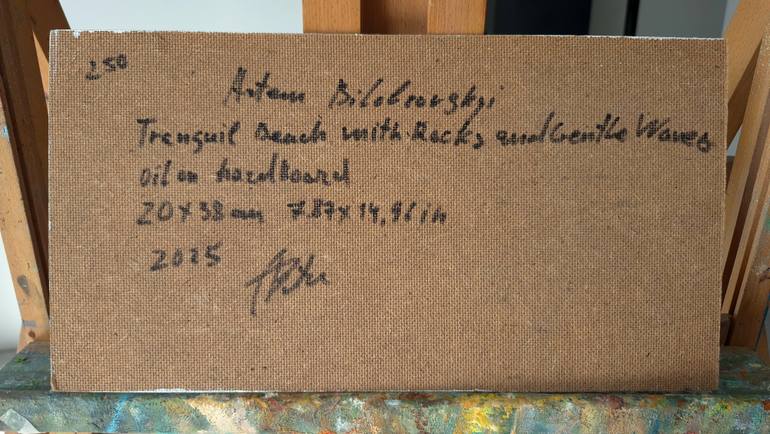 250
Artem Bilobrovskyi
Tranquil Beach with Rocks and Gentle Waves
oil on hardboard
20x38 cm 7.87x14,96 in
2025